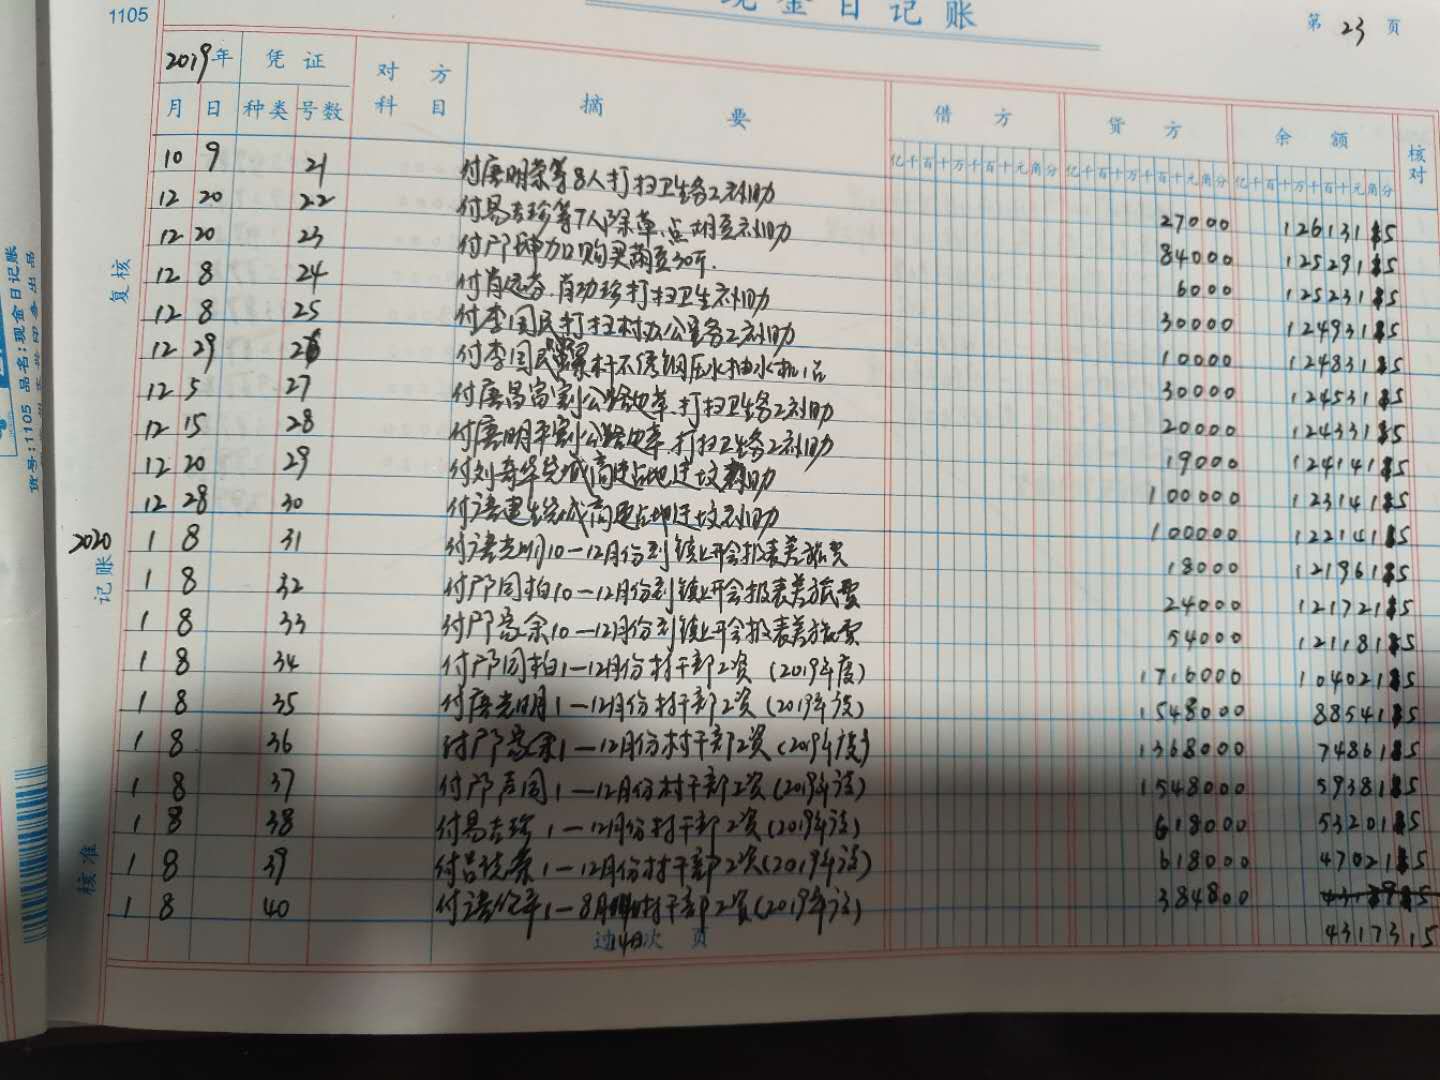 1105
现金日记账
第 23 页
2019年 凭证 对方科目 摘要 借方 贷方 余额 核对
月 日 种类 号数 亿千百十万千百十元角分 亿千百十万千百十元角分 亿千百十万千百十元角分
10 9 21 付唐明荣等8人打扫卫生务工补助 27000 12613115
12 20 22 付易吉珍等7人除草、点胡豆补助 84000 12529115
12 20 23 付邝 购买葫豆30斤. 6000 12523115
12 8 24 付肖 、肖功珍打扫卫生补助 30000 12493115
12 8 25 付李国民打扫村办公室务工补助 10000 12483115
12 29 26 付李国民 螺杆不锈钢压水抽水机1台 30000 12453115
12 5 27 付唐昌富割公路边草、打扫卫生务工补助 20000 12433115
12 15 28 付唐明平割公路边草、打扫卫生务工补助 19000 12414115
12 20 29 付刘 华 高速占地迁坟补助 100000 12314115
12 28 30 付 建生 高速占地迁坟补助 100000 12214115
2020
1 8 31 付唐光明10-12月份到镇上开会报表差旅费 18000 12196115
1 8 32 付邝同柏10-12月份到镇上开会报表差旅费 24000 12172115
1 8 33 付邝高余10-12月份到镇上开会报表差旅费 54000 12118115
1 8 34 付邝同柏1-12月份村干部工资(2019年度) 1716000 10402115
1 8 35 付唐光明1-12月份村干部工资(2019年度) 1548000 8854115
1 8 36 付邝高余1-12月份村干部工资(2019年度) 1368000 7486115
1 8 37 付邝 同1-12月份村干部工资(2019年度) 1548000 5938115
1 8 38 付易吉珍1-12月份村干部工资(2019年度) 618000 5320115
1 8 39 付吕 1-12月份村干部工资(2019年度) 618000 4702115
1 8 40 付 平1-8月 村干部工资(2019年度) 384800
过 次 页 43173.15
复核
记账
核准
货号:1105 品名:现金日记账